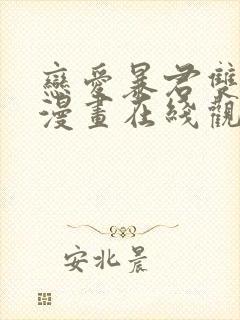 戀愛暴君雙
漫畫在綫觀
安北晨